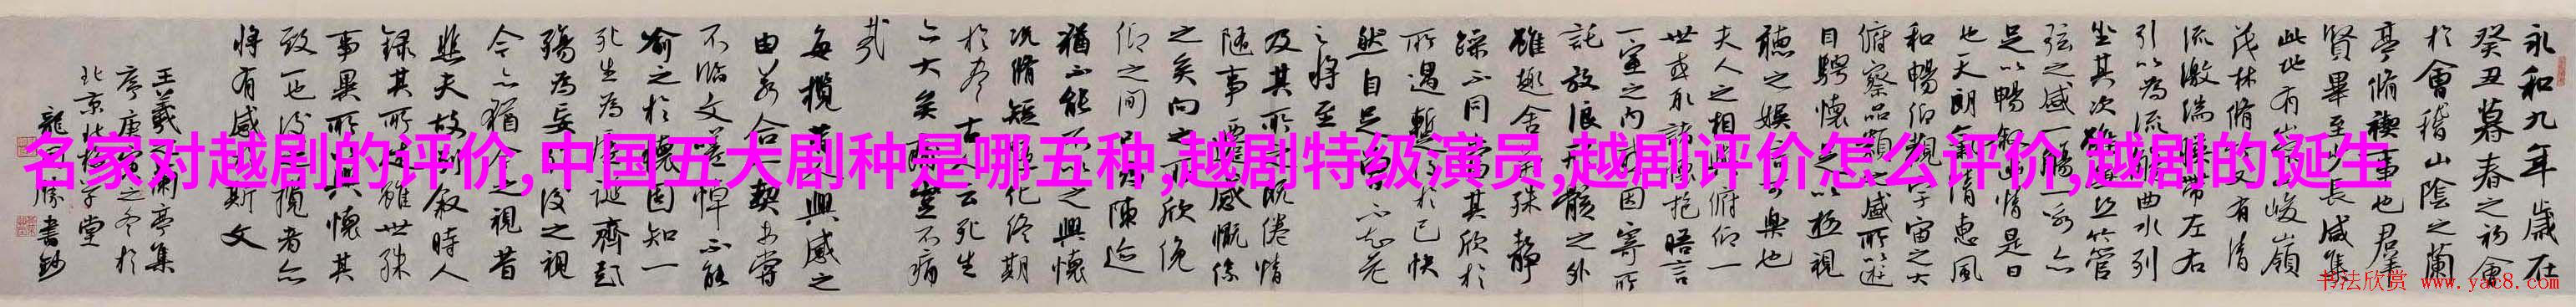 永和九年歲在
癸丑暮春之初會
於會稽山陰之蘭
亭脩禊事也羣
賢畢至少長咸集
此地有崇山峻嶺
茂林脩竹又有清
流激湍映帶左右
引以為流觴曲水列
坐其次雖無絲竹管
弦之盛一觴一詠亦
足以暢敘幽情是日
也天朗氣清惠風
和暢仰觀宇宙之大
俯察品類之盛所以遊
目騁懷足以極視
聽之娛信可樂也
夫人之相與俯仰一
世或取諸懷抱晤言
一室之內或因寄所
託放浪形骸之外
雖趣舍萬殊靜
躁不同當其欣於
所遇暫得於己快
然自足不知老
之將至
及其所之既倦情
隨事遷感慨係
之矣向之所欣俛
仰之間已為陳迹
猶不能不以之興懷
況脩短隨化終期
於盡古人云死生
亦大矣豈不痛
哉
每攬昔人興感之
由若合一契未嘗
不臨文嗟悼不能
喻之於懷固知一
死生為虛誕齊彭
殤為妄作後之視
今亦猶今之視昔
悲夫故列敘時人
錄其所述雖世殊
事異所以興懷其
致一也後之攬者亦
將有感於斯文
王羲之蘭亭集
序庚之冬於
北京北大學堂
龍開勝書鈔
名家对越剧的评价,中国五大剧种是哪五种,越剧特级演员,越剧评价怎么评价,越剧的诞生
书法欣赏 www.yac8.com